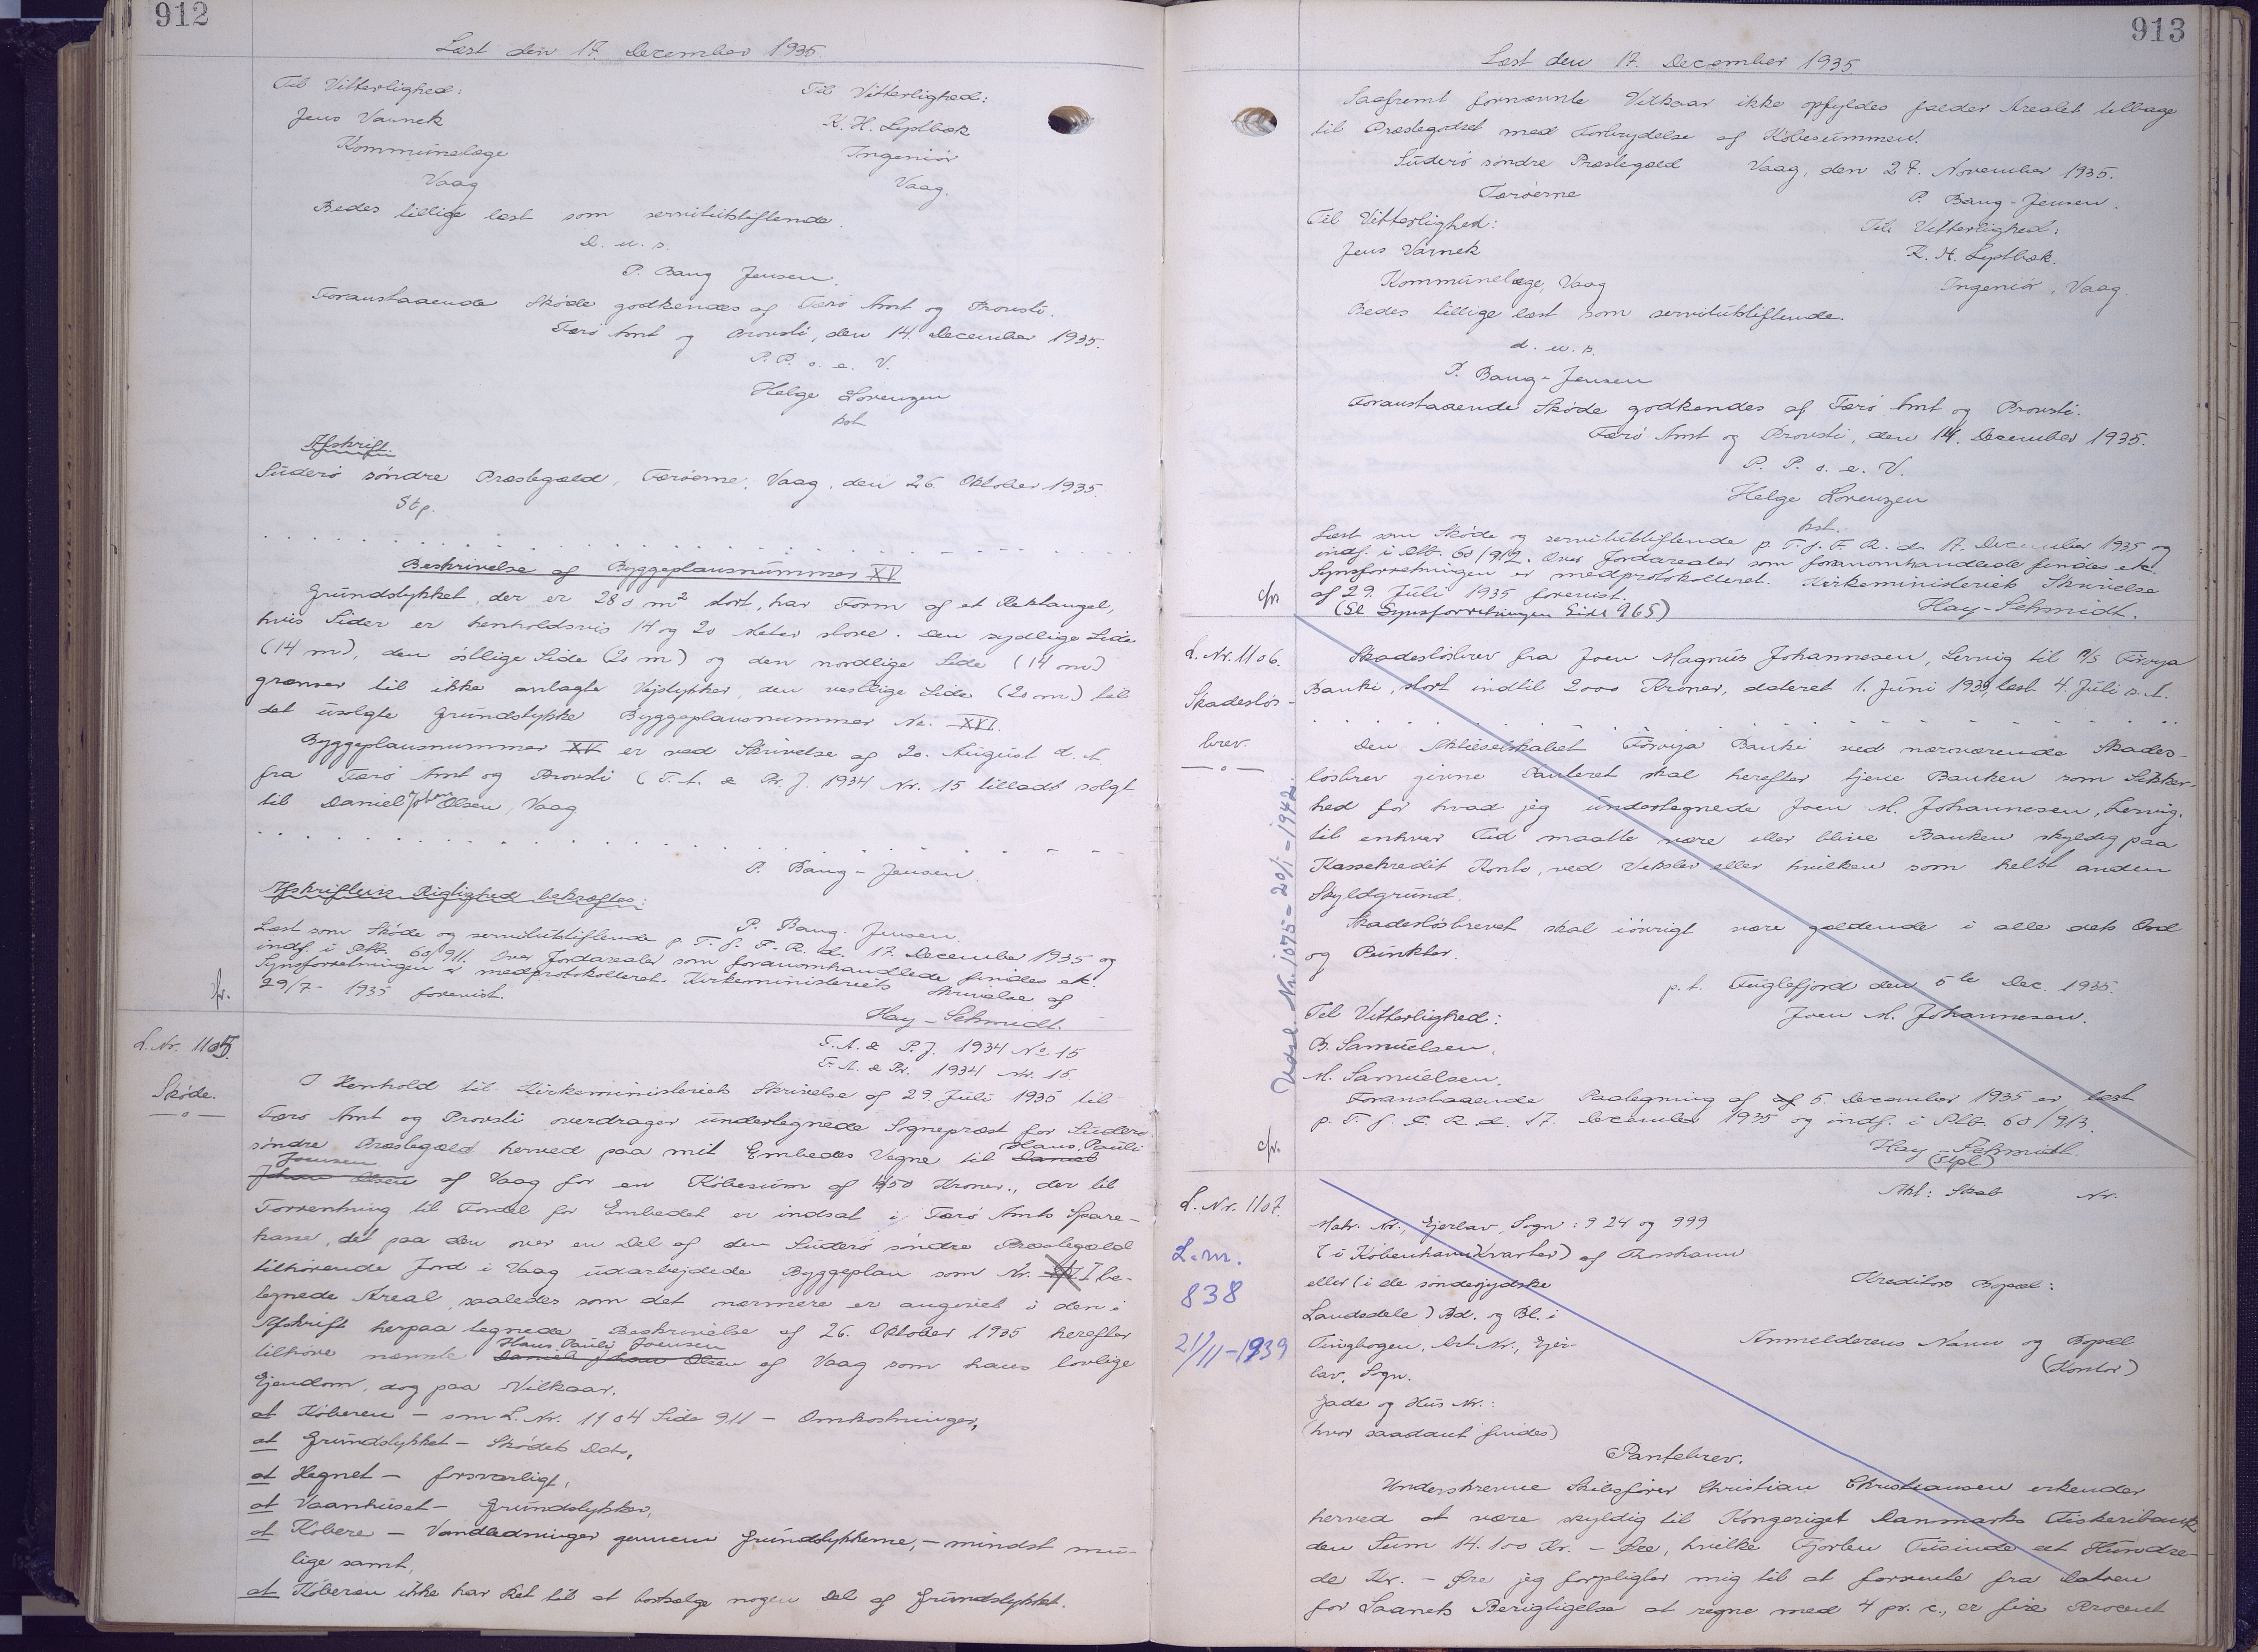 912
Læst den 17. December 1935.
Til Vitterlighed:
Til Vitterlighed:
Jens Varnek
K. H. Lystbæk
Kommunelæge
Ingeniör
Vaag
Vaag.
Bedes tillige læst som servitutstiftende.
D. u. s.
P. Bang Jensen.
Foranstaaende Skøde godkendes af Færø Amt og Provsti.
Færø Amt og Provsti, den 14. December 1935.
P. P. o. e. V.
Helge Lorenzen
kst.
Afskrift.
Suderø søndre Præstegæld, Færøerne, Vaag, den 26. Oktober 1935.
Stp.
Beskrivelse af Byggeplansnummer XV
Grundstykket, der er 280 m² stort, har Form af et Rektangel,
hvis Sider er henholdsvis 14 og 20 Meter store. Den sydlige Side
(14 m), den østlige Side (20 m) og den nordlige Side (14 m)
grænser til ikke anlagte Vejstykker, den vestlige Side (20 m) til
det usolgte Grundstykke Byggeplansnummer Nr. XVI.
Byggeplansnummer XV er ved Skrivelse af 20. August d. A.
fra Færø Amt og Provsti (F. A. & Pr. J. 1934 Nr. 15 tilladt solgt
til Daniel Johan Olsen, Vaag.
P. Bang-Jensen.
Afskriftens Rigtighed bekræftes:
P. Bang-Jensen.
Læst som Skøde og servitutstiftende p. T. f. F. R. d. 17. December 1935 og
indf. i Ptb. 60/911. Over Jordarealer som foranomhandlede findes ek.
Synsforretningen er medprotokolleret. Kirkeministeriets Skrivelse af
29/7- 1935 forevist.
Hay-Schmidt.
cfr.
L. Nr. 1105.
Skøde.
F. A. & P. J. 1934 No 15
F. A. & Pr. 1934 Nr. 15.
I Henhold til Kirkeministeriets Skrivelse af 29. Juli 1935 til
Færø Amt og Provsti overdrager undertegnede Sognepræst for Suderø
søndre Præstegæld herved paa mit Embedes Vegne til Daniel Hans Pauli
Joensen
Johan Olsen af Vaag for en Købesum af 150 Kroner., der til
Forrentning til Fordel for Embedet er indsat i Færø Amts Spare-
kasse, det paa den over en Del af den Suderø søndre Præstegæld
tilhørende Jord i Vaag udarbejdede Byggeplan som Nr. XVI be-
tegnede Areal, saaledes som det nærmere er angivet i den i
Afskrift herpaa tegnede Beskrivelse af 26. Oktober 1935 herefter
Hans Pauli Joensen
tilhøre nævnte Daniel Johan Olsen af Vaag som hans lovlige
Ejendom, dog paa Vilkaar.
at Køberen - som L. Nr. 1104 Side 911 - Omkostninger,
at Grundstykket - Skødets Dato,
at Hegnet - forsvarligt,
at Vaanhuset - Grundstykker,
at Købere - Vandledninger gennem Grundstykkerne, - mindst mu-
lige samt,
at Køberen ikke har Ret til at bortsælge nogen Del af Grundstykket.
913
Læst den 17. December 1935
Saafremt fornævnte Vilkaar ikke opfyldes falder Arealet tilbage
til Præstegodset med Forbrydelse af Købesummen.
Suderø søndre Præstegæld Vaag, den 27. November 1935.
Færøerne
P. Bang-Jensen.
Til Vitterlighed:
Til Vitterlighed:
Jens Varnek
K. H. Lystbæk.
Kommunelæge, Vaag
Ingeniör, Vaag.
Bedes tillige læst som servitutstiftende.
d. u. s.
P. Bang-Jensen
Foranstaaende Skøde godkendes af Færø Amt og Provsti.
Færø Amt og Provsti, den 14. December 1935.
P. P. o. e. V.
Helge Lorenzen
kst.
Læst som Skøde og servitutstiftende p. T. f. F. R. d. 17. December 1935 og
indf. i Ptb. 60/912. Over Jordarealer som foranomhandlede findes ek.
Synsforretningen er medprotokolleret. Kirkeministeriets Skrivelse
af 29. Juli 1935 forevist.
(Se Synsforretningen Side 965)
Hay-Schmidt.
cfr
L. Nr. 1106.
Skadesløs-
brev.
Udsl. Nr. 1075 - 20/1 - 1942.
Skadesløsbrev fra Joen Magnus Johannesen, Lervig til A/S Föroya
Banki, stort indtil 2000 Kroner, dateret 1. Juni 1933, læst 4. Juli s. A.
Den Aktieselskabet Föroya Banki ved nærværende Skades-
løsbrev givne Panteret skal herefter tjene Banken som Sikker-
hed for hvad jeg undertegnede Joen M. Johannesen, Lervig,
til enhver Tid maatte være eller blive Banken skyldig paa
Kassekredit Konto, ved Veksler eller hvilken som helst anden
Skyldgrund.
Skadesløsbrevet skal iøvrigt være gældende i alle dets Ord
og Punkter.
p. t. Fuglefjord den 5te Dec. 1935.
Til Vitterlighed:
Joen M. Johannesen.
B. Samuelsen.
M. Samuelsen.
Foranstaaende Paategning af af 5. December 1935 er læst
p. T. f. F. R. d. 17. December 1935 og indf. i Ptb. 60/913.
Hay-Schmidt.
(Stpl.)
cfr.
L. Nr. 1107.
L. nr.
838
21/11-1939
Akt: Skab Nr.
Matr. Nr., Ejerlav, Sogn: 924 og 999
(i København Kvarter) af Thorshavn
eller (i de sønderjydske
Kreditors Bopæl:
Landsdele) Bd. og Bl. i
Tingbogen, Art Nr., Ejer-
Anmelderens Navn og Bopæl
lav, Sogn.
(Kontor)
Gade og Hus Nr.:
(hvor saadant findes)
Pantebrev.
Underskrevne Skibsfører Christian Christiansen erkender
herved at være skyldig til Kongeriget Danmarks Fiskeribank
den Sum 14.100 Kr. - Øre, hvilke Fjorten Tusinde eet Hundre-
de Kr. - Øre jeg forpligter mig til at forrente fra Datoen
for Laanets Berigtigelse at regne med 4 pr. c., er fire Procent